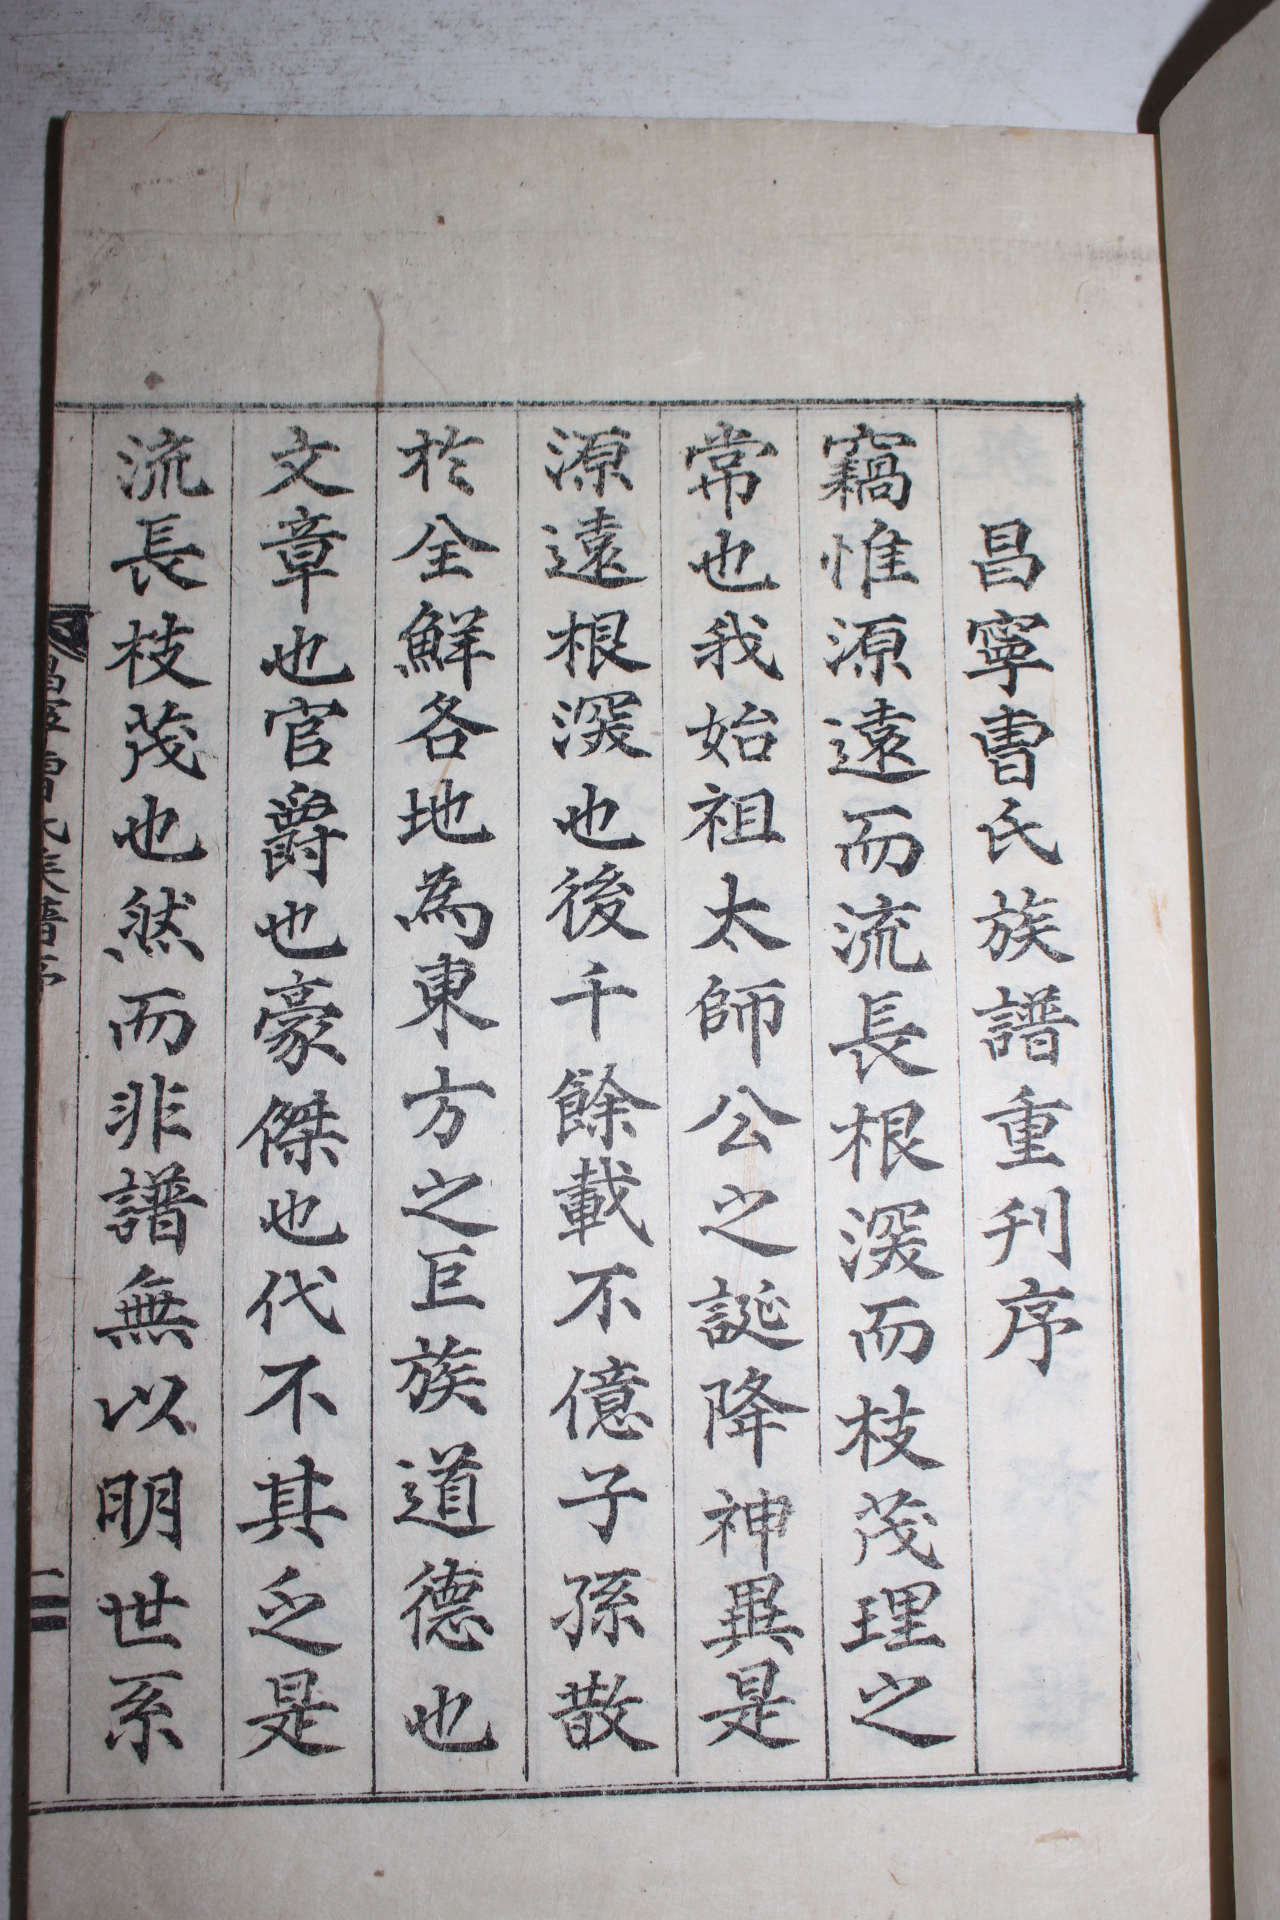 昌寧曺氏族譜重刊序
竊惟源遠而流長根深而枝茂理之
常也我始祖太師公之誕降神異是
源遠根深也後千餘載不億子孫散
於全鮮各地為東方之巨族道德也
文章也官爵也豪傑也代不其乏是
流長枝茂也然而非譜無以明世系